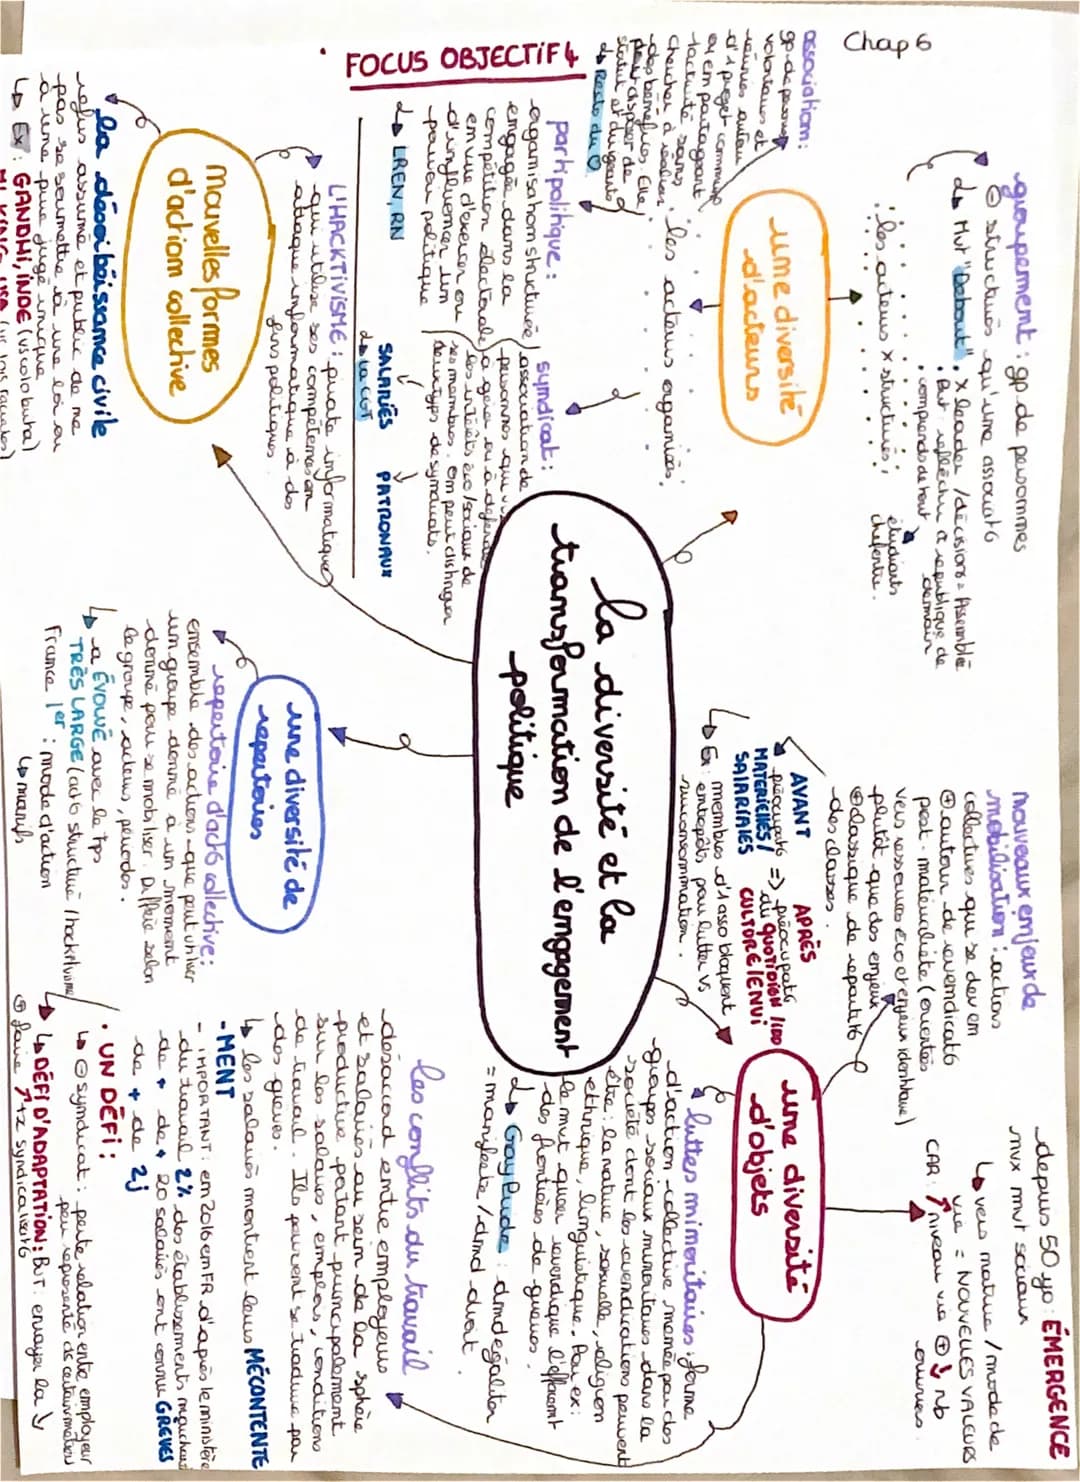 Chap 6
FOCUS OBJECTIF 4
la diversité et la
transformation de l'engagement
politique
une diversité
d'acteurs
groupement : gp. de personnes
⊖ structurés qu'une associatº
↳ Mvt "Debout"
. x leader / décisions = Assemblé
. But : réfléchir à republique de
demain
. comprends de tout
étudiants
chefentre.
. les acteurs x structurés :
. les acteurs organisés.
association :
gp. de personnes
volontaires et
réunies autour
d'1 projet commun
ou en partageant
l'activité sans
chercher à réaliser
des bénéfices. Elle
peut disposer de
statut et dirigeants
↳ Resto du ♡
parti politique :
organisation structurée
engagée dans la
compétition électorale
en vue d'exercer ou
d'influencer un
pouvoir politique
↳ LREN, RN
syndicat :
association de
personnes qui vise
à gérer ou à défendre
les intérêts éco/sociaux de
ses membres. on peut distinguer
deux types de syndicats.
SALARIÉS
PATRONAUX
↳ la CGT
L'HACKTIVISME : pirate informatique
qui utilise ses compétences en
attaque informatique à des
fins politiques.
nouvelles formes
d'action collective
la désobéissance civile
refus assumé et public de ne
pas se soumettre à une loi ou
à une jugé inique
↳ EX : GANDHI, INDE (vs colo buta)
une diversité de
repertoires
repertoire d'actº collective :
ensemble des actions que peut utiliser
un groupe donné à un moment
donné pour se mobiliser. Diffère selon
le groupe, acteurs, périodes.
↳ a ÉVOLUÉ avec le tps
TRÈS LARGE (auto structuré / hacktivisme
France 1er : mode d'action
↳ manifs
une diversité
d'objets
nouveaux enjeux de
mobilisation : actions
collectives qui se dev en
⊕ autour de revendicatº
post-matérialiste (orientés
vers ressources éco et enjeux identitaire)
plutôt que des enjeux
⊕ classique de repartitº
des classes.
AVANT
préoccupatº
MATERIELLES /
SALARIALES
=>
APRÈS
préoccupatº
du QUOTIDIEN /
CULTURE / ENVI
↳ Ex : membres d'asso bloquent
entrepôts pour lutter vs
surconsommation.
depuis 50 yo : ÉMERGENCE
nvx mvt sociaux
↳ vers nature / mode de
vie = NOUVELLES VALEURS
CAR : ↗ niveau vie ⊕ ↘ nb
ouvriers
luttes minoritaires : forme
d'action collective menée par des
groupes sociaux minoritaires dans la
société dont les revendications peuvent
être : la nature, sexuelle, religion
ethnique, linguistique. Par ex :
le mvt queer revendique l'effacemt
des frontières de genres.
↳ Gay Pride : dmd égalité
= manifeste / dmd droit.
les conflits du travail
désaccord entre employeurs
et salariés au sein de la sphère
productive patant principalement
sur les salaires, emplois, conditions
de travail. Ils peuvent se traduire par
des grèves.
↳ les salariés montrent leurs MÉCONTENTE
-MENT
- IMPORTANT : em 2016 em FR d'après le ministère
du travail 2% des établissements
de + de 20 salariés ont connu GRÈVES
de + de 2j
. UN DÉFI :
↳ ⊖ syndicat : perte relation entre employeur
peu représenté ds certain métiers
↳ DÉFI D'ADAPTATION : BUT : enrayer la ↘
⊕ faire ↗ tx syndicalisatº